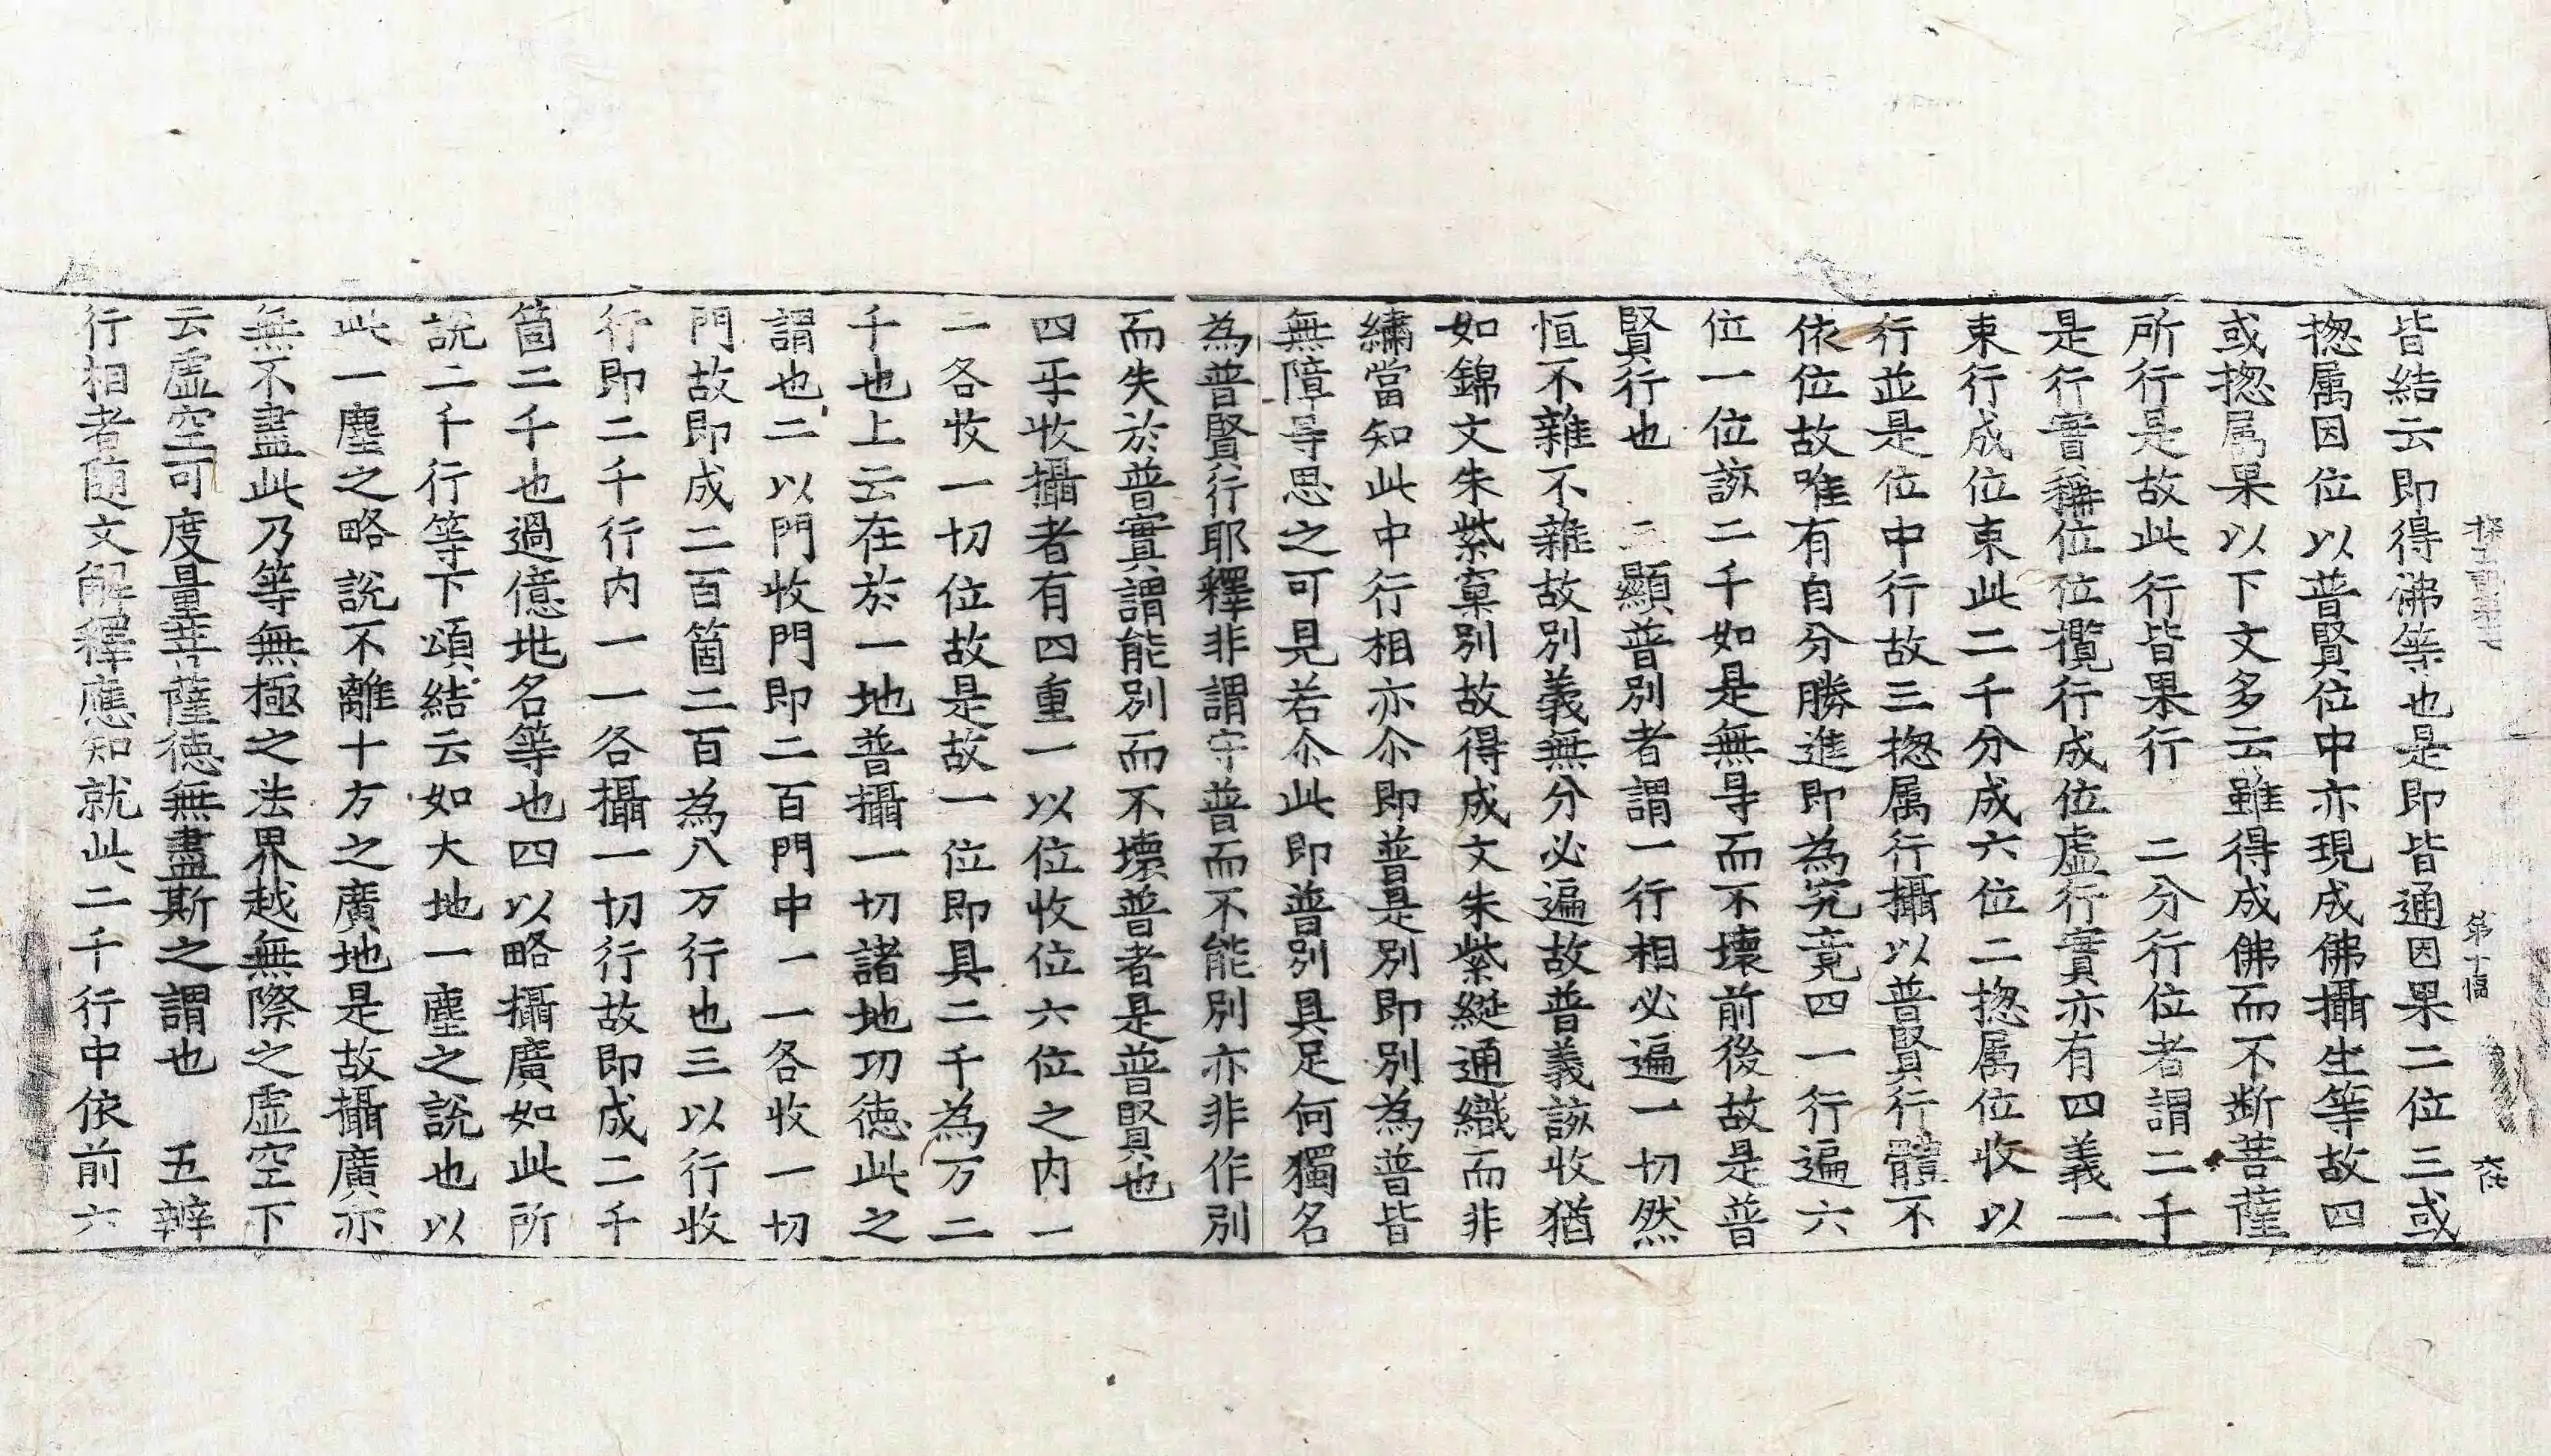 第十幅
皆結云即得佛等也是即皆通因果二位三或
揔属因位以普賢位中亦現成佛攝生等故四
或揔属果以下文多云雖得成佛而不断菩薩
所行是故此行皆果行　二分行位者謂二千
是行實稱位位攬行成位虛行實亦有四義一
束行成位束此二千分成六位二揔属位收以
行並是位中行故三揔属行攝以普賢行體不
依位故唯有自分勝進即為究竟四一行遍六
位一位該二千如是無㝵而不壞前後故是普
賢行也　三顯普別者謂一行相必遍一切然
恒不雜不雜故別義無分必遍故普義該收猶
如錦文朱紫窠別故得成文朱紫綖通織而非
繡當知此中行相亦尒即普是別即別為普皆
無障㝵思之可見若尒此即普別具足何獨名
為普賢行耶釋非謂守普而不能別亦非作別
而失於普實謂能別而不壞普者是普賢也
四乎收攝者有四重一以位收位六位之内一
一各收一切位故是故一位即具二千為万二
千也上云在於一地普攝一切諸地功徳此之
謂也二以門收門即二百門中一一各收一切
門故即成二百箇二百為八万行也三以行收
行即二千行内一一各攝一切行故即成二千
箇二千也過億地名等也四以略攝廣如此所
說二千行等下頌結云如大地一塵之說也以
此一塵之略說不離十方之廣地是故攝廣亦
無不盡此乃等無極之法界越無際之虛空下
云虛空可度量菩薩徳無盡斯之謂也　五辨
行相者随文解釋應知就此二千行中依前六